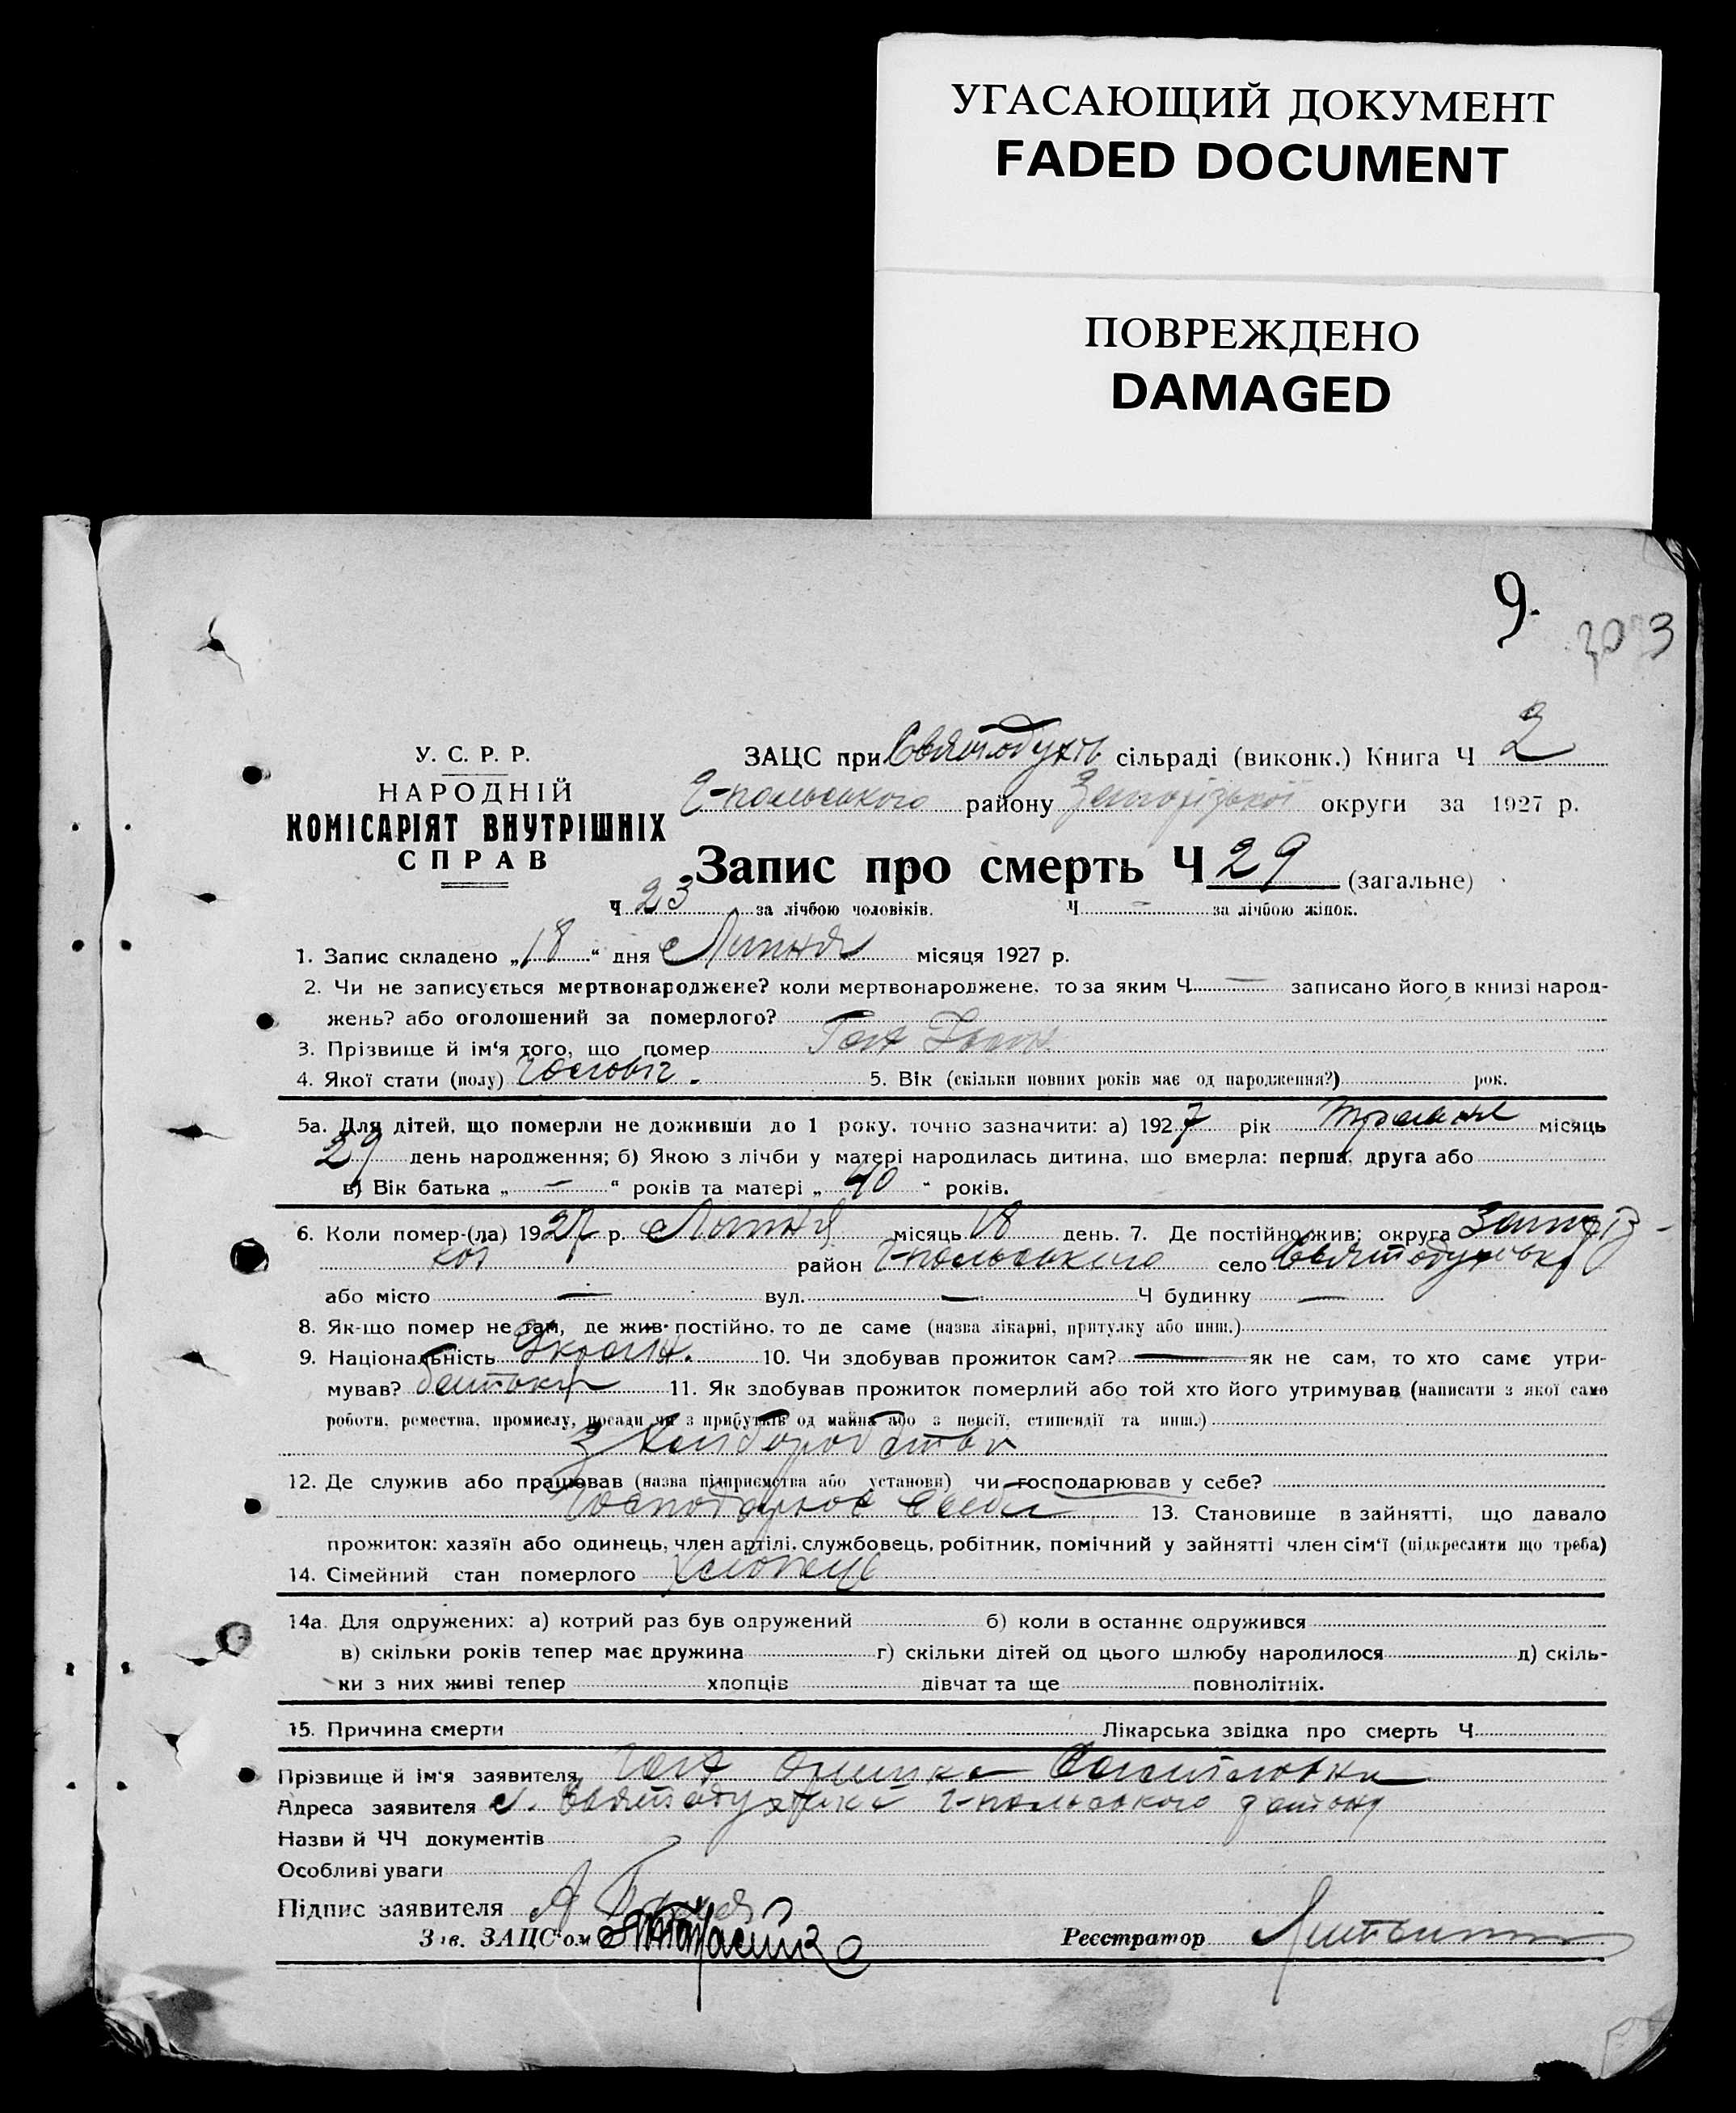 УГАСАЮЩИЙ ДОКУМЕНТ
FADED DOCUMENT
ПОВРЕЖДЕНО
DAMAGED
9.
У. С. Р. Р.
НАРОДНІЙ
КОМІСАРІЯТ ВНУТРІШНІХ
СПРАВ
ЗАЦС при Святодухів. сільраді (виконк.) Книга Ч 2
Г-польського району Запорізької округи за 1927 р.
Запис про смерть Ч 29 (загальне)
Ч 23 за лічбою чоловіків. Ч — за лічбою жінок.
1. Запис складено „18“ дня Липня місяця 1927 р.
2. Чи не записується мертвонароджене? коли мертвонароджене, то за яким Ч — записано його в книзі народ-
жень? або оголошений за померлого?
3. Прізвище й ім'я того, що помер Гоя Іван
4. Якої стати (полу) Чоловіч. 5. Вік (скільки повних років має од народження?) рок.
5а. Для дітей, що померли не доживши до 1 року, точно зазначити: а) 1927 рік травня місяць
29 день народження; б) Якою з лічби у матері народилась дитина, що вмерла: перша, друга або
в) Вік батька „ — “ років та матері „ 40 “ років.
6. Коли помер-(ла) 1927 р. Липня місяць 18 день. 7. Де постійно жив: округа Запоріз-
кої район Г-польського село Святодухівка
або місто — вул. — Ч будинку —
8. Як-що помер не там, де жив постійно, то де саме (назва лікарні, притулку або инш.)
9. Національність Україн. 10. Чи здобував прожиток сам? — як не сам, то хто саме утри-
мував? батьки 11. Як здобував прожиток померлий або той хто його утримував (написати з якої саме
роботи, ремества, промислу, посади чи з прибутків од майна або з пенсії, стипендії та инш.)
З хліборобства
12. Де служив або працював (назва підприємства або установи) чи господарював у себе?
Господарює в себе 13. Становище в зайнятті, що давало
прожиток: хазяїн або одинець, член артілі, службовець, робітник, помічний у зайнятті член сім'ї (підкреслити що треба)
14. Сімейний стан померлого хлопець
14а. Для одружених: а) котрий раз був одружений б) коли в останнє одружився
в) скільки років тепер має дружина г) скільки дітей од цього шлюбу народилося д) скіль-
ки з них живі тепер хлопців дівчат та ще повнолітніх.
15. Причина смерти Лікарська звідка про смерть Ч
Прізвище й ім'я заявителя Гоя
Адреса заявителя с. Святодухівка Г-польського району
Назви й ЧЧ документів
Особливі уваги
Підпис заявителя
Зав. ЗАЦС'ом Реєстратор